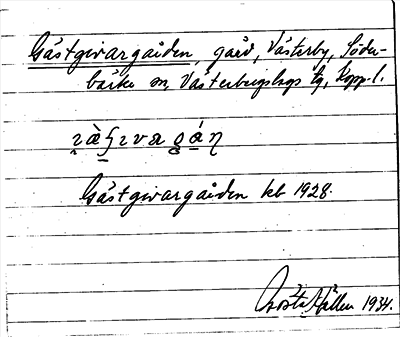 Gästgivargården, gård, Västerby, Söder-
bärke sn, Västerbergslags tg, Kopp. l.
Gästgivargården kb 1928.
Gösta Hällen 1934.